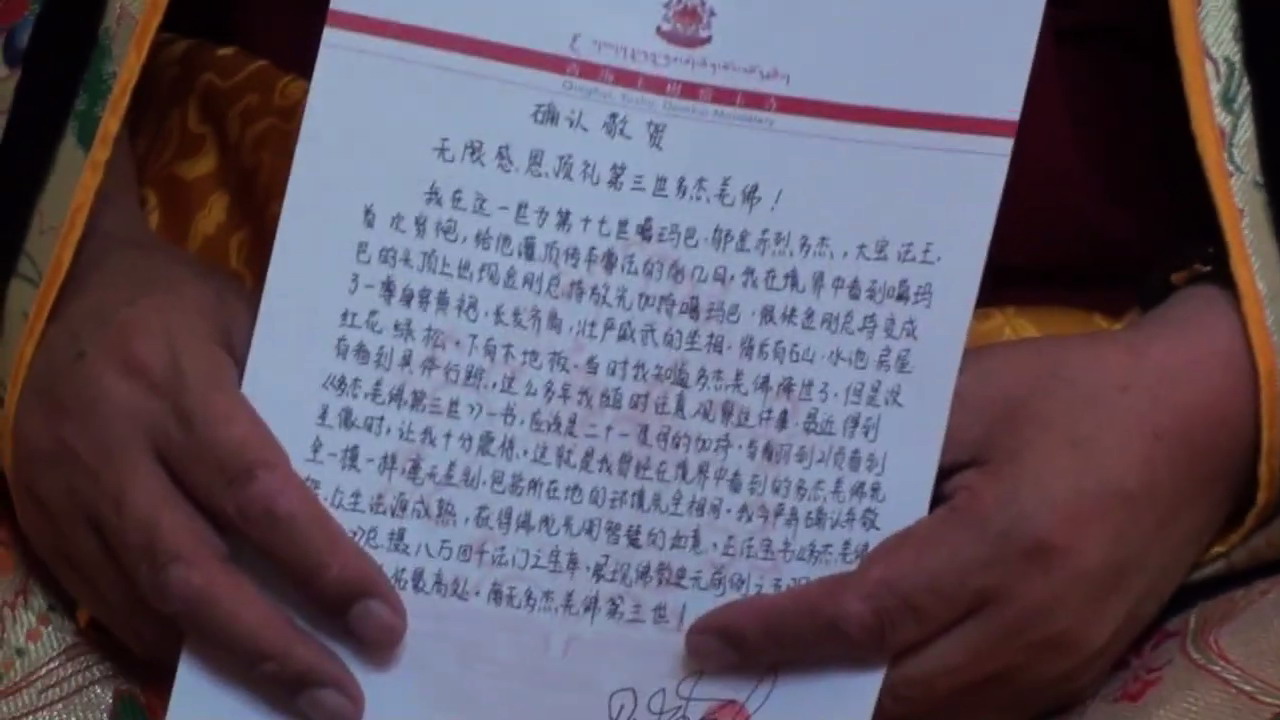 Qinghai, Yushu, Domkar Monastery
确认敬贺
无限感恩顶礼第三世多杰羌佛！
我在这一世为第十七世噶玛巴·邬金赤烈多杰，大宝法王，
首次穿袍，给他灌顶传承尊法的前几日，我在境界中看到噶玛
巴的头顶上出现金刚总持放光加持噶玛巴，很快金刚总持变成
了一尊身穿黄袍，长发齐胸，壮严威武的坐相，背后有石山·水池·房屋
红花绿松，下有木地板，当时我知道多杰羌佛降过了，但是没
有看到具体行踪，这么多年我随时注意观察这件事，最近得到
《多杰羌佛第三世》一书，应该是二十一度母的加持，当翻到21页看到
圣像时，让我十分震惊，这就是我曾经在境界中看到的多杰羌佛完
全一模一样，毫无差别，包括所在地的环境完全相同，我今严肃确认并敬
贺，众生法源成熟，获得佛陀无阇智慧的如意，正法宝书《多杰羌佛
总摄八万四千法门之宝库，展现佛教史无前例之五明
最高处，南无多杰羌佛第三世！